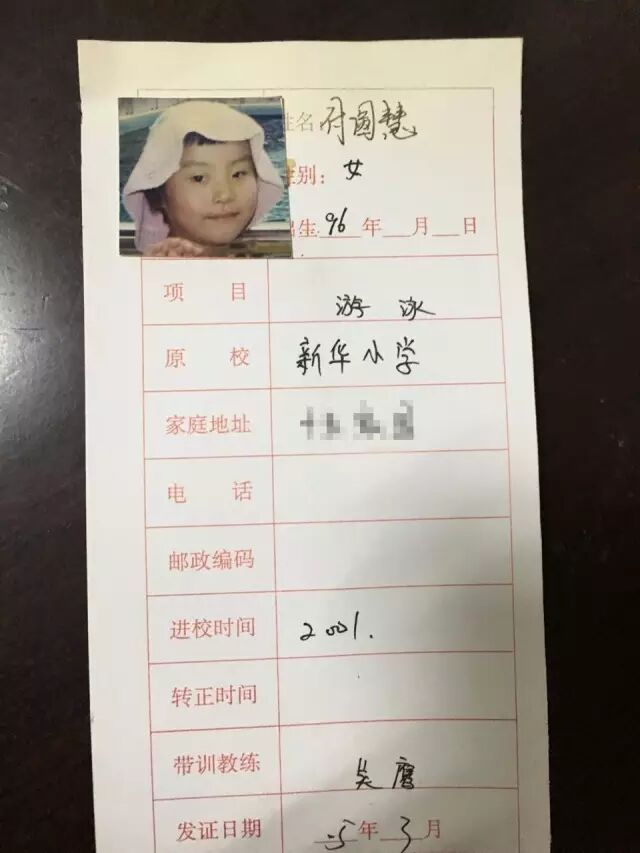 姓名 慧
性别: 女
出生 96 年 月 日
项 目 游泳
原 校 新华小学
家庭地址
电 话
邮政编码
进校时间 2001.
转正时间
带训教练 吴
发证日期 5年3月